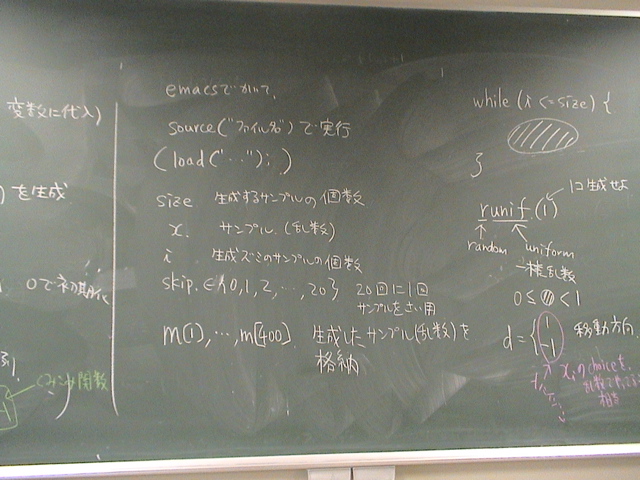 変数に代入)
を生成
0で初期化
関数
emacsでかいて、
source("ファイル名")で実行
(load("…"); )
size 生成するサンプルの個数
x. サンプル.(乱数)
i 生成ズミのサンプルの個数
skip. ∈{0, 1, 2, …, 20} 20回に1回
サンプルをさい用
m[1], …, m[400] 生成したサンプル(乱数)を
格納
while (i <= size) {
}
1コ生成せよ
runif.(1)
random uniform
一様乱数
0 ≤ ≤ < 1
d = { 1 -1 移動方向.
choiceを
乱数で